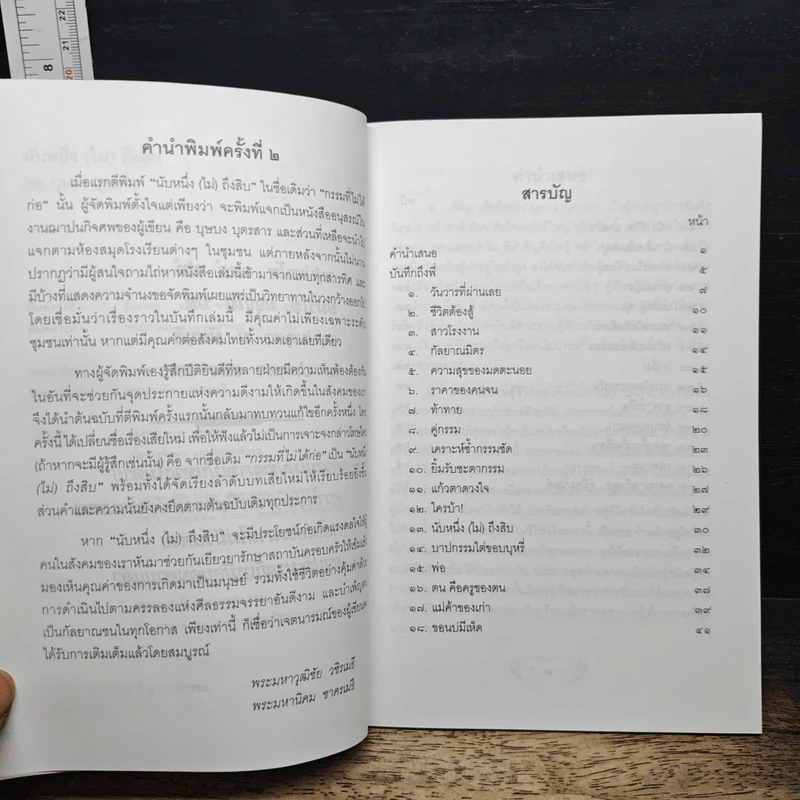 8
22
21
20
คำนำพิมพ์ครั้งที่ ๒
เมื่อแรกตีพิมพ์ “นับหนึ่ง (ไม่) ถึงสิบ” ในชื่อเดิมว่า “กรรมที่ไม่ได้
ก่อ” นั้น ผู้จัดพิมพ์ตั้งใจแต่เพียงว่า จะพิมพ์แจกเป็นหนังสืออนุสรณ์ใน
งานฌาปนกิจศพของผู้เขียน คือ บุษบง บุตรสาร และส่วนที่เหลือจะนำไป
แจกตามห้องสมุดโรงเรียนต่างๆ ในชุมชน แต่ภายหลังจากนั้นไม่นาน
ปรากฏว่ามีผู้สนใจถามไถ่หาหนังสือเล่มนี้เข้ามาจากแทบทุกสารทิศ และ
มีบ้างที่แสดงความจำนงขอจัดพิมพ์เผยแพร่เป็นวิทยาทานในวงกว้างออกไป
โดยเชื่อมั่นว่าเรื่องราวในบันทึกเล่มนี้ มีคุณค่าไม่เพียงเฉพาะระดับ
ชุมชนเท่านั้น หากแต่มีคุณค่าต่อสังคมไทยทั้งหมดเอาเลยทีเดียว
ทางผู้จัดพิมพ์เองรู้สึกปีติยินดีที่หลายฝ่ายมีความเห็นพ้องต้องกัน
ในอันที่จะช่วยกันจุดประกายแห่งความดีงามให้เกิดขึ้นในสังคมของเรา
จึงได้นำต้นฉบับที่ตีพิมพ์ครั้งแรกนั้นกลับมาทบทวนแก้ไขอีกครั้งหนึ่ง โดย
ครั้งนี้ ได้เปลี่ยนชื่อเรื่องเสียใหม่ เพื่อให้ฟังแล้วไม่เป็นการเจาะจงกล่าวโทษใคร
(ถ้าหากจะมีผู้รู้สึกเช่นนั้น) คือ จากชื่อเดิม “กรรมที่ไม่ได้ก่อ” เป็น “นับหนึ่ง
(ไม่) ถึงสิบ” พร้อมทั้งได้จัดเรียงลำดับบทเสียใหม่ให้เรียบร้อยยิ่งขึ้น
ส่วนคำและความนั้นยังคงยึดตามต้นฉบับเดิมทุกประการ
หาก “นับหนึ่ง (ไม่) ถึงสิบ” จะมีประโยชน์ก่อเกิดแรงดลใจให้ผู้
คนในสังคมของเราหันมาช่วยกันเยียวยารักษาสถาบันครอบครัวให้เข้มแข็ง
มองเห็นคุณค่าของการเกิดมาเป็นมนุษย์ รวมทั้งใช้ชีวิตอย่างคุ้มค่าด้วย
การดำเนินไปตามครรลองแห่งศีลธรรมจรรยาอันดีงาม และบำเพ็ญตน
เป็นกัลยาณชนในทุกโอกาส เพียงเท่านี้ ก็เชื่อว่าเจตนารมณ์ของผู้เขียนคง
ได้รับการเติมเต็มแล้วโดยสมบูรณ์
พระมหาวุฒิชัย วชิรเมธี
พระมหานิคม ชาครเมธี
สารบัญ
หน้า
คำนำเสนอ ๑
บันทึกถึงพี่ ๕
๑. วันวารที่ผ่านเลย ๗
๒. ชีวิตต้องสู้ ๑๐
๓. สาวโรงงาน ๑๑
๔. กัลยาณมิตร ๑๔
๕. ความสุขของมดตะนอย ๑๕
๖. ราคาของคนจน ๑๖
๗. ท้าทาย ๑๘
๘. คู่กรรม ๒๐
๙. เคราะห์ซ้ำกรรมซัด ๒๓
๑๐. ยิ้มรับชะตากรรม ๒๖
๑๑. แก้วตาดวงใจ ๒๗
๑๒. ใครบ้า! ๒๙
๑๓. นับหนึ่ง (ไม่) ถึงสิบ ๓๐
๑๔. บาปกรรมไต่ขอบบุหรี่ ๓๒
๑๕. พ่อ ๓๔
๑๖. ตน คือครูของตน ๓๗
๑๗. แม่ค้าของเก่า ๓๙
๑๘. ขอนบ่มีเห็ด ๔๑